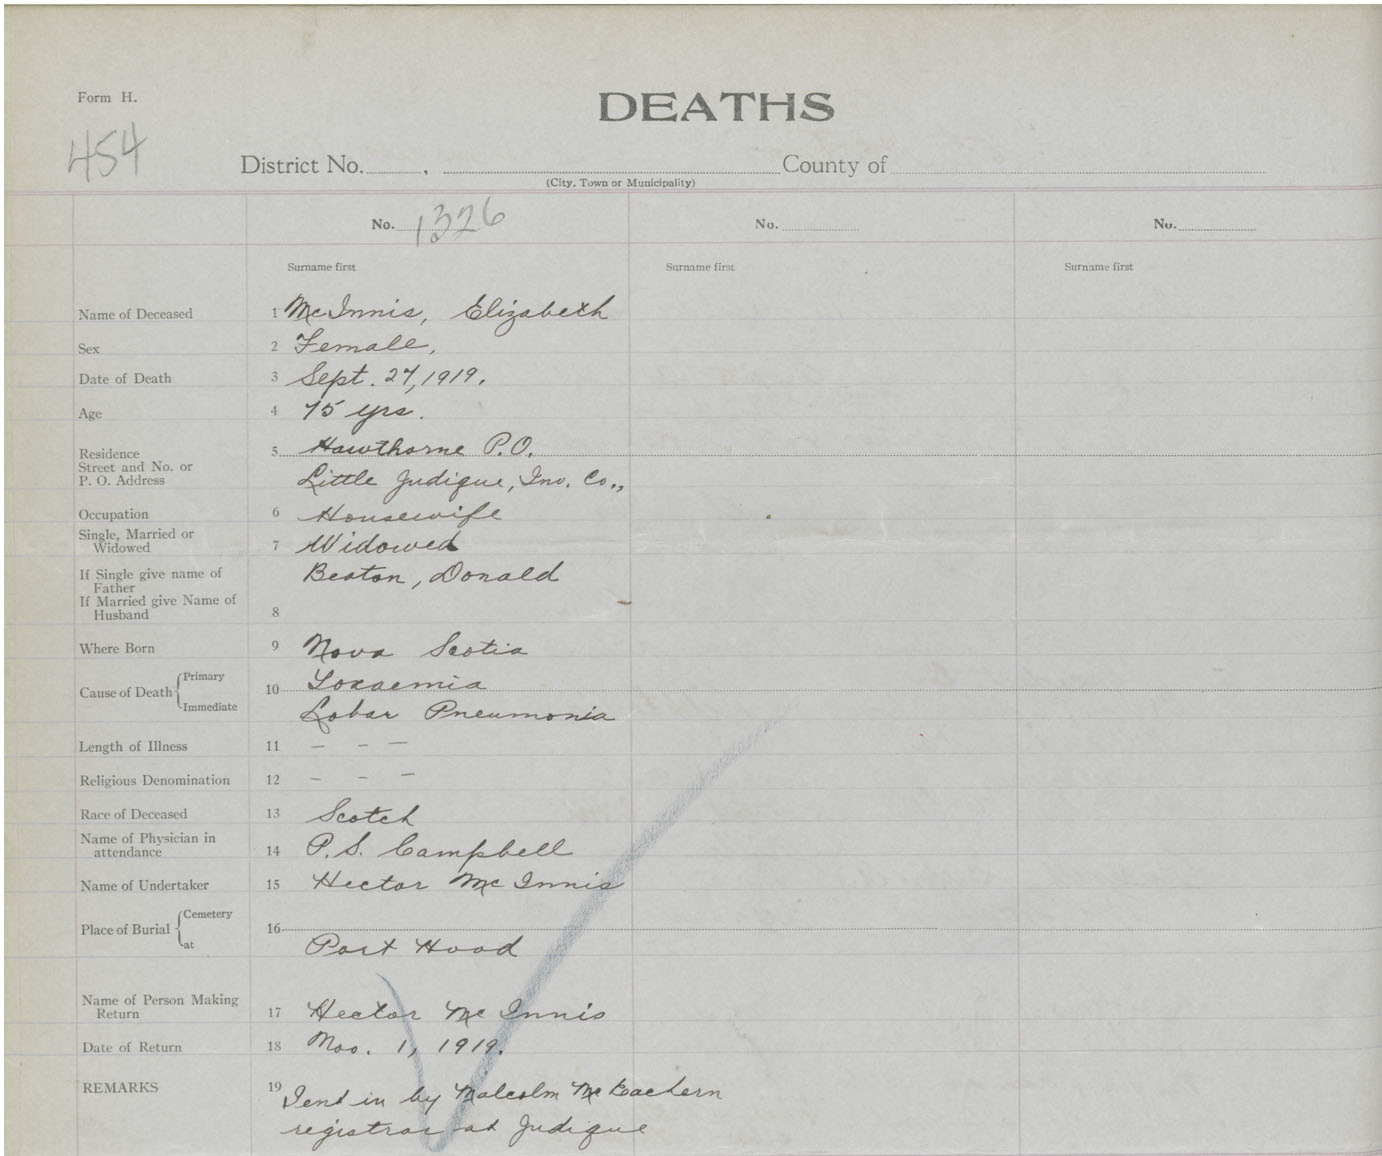 Form H.
DEATHS
454
District No. , County of
(City, Town or Municipality)
No. 1326 No. No.
Surname first Surname first Surname first
Name of Deceased 1 McInnis, Elizabeth
Sex 2 Female,
Date of Death 3 Sept. 27, 1919.
Age 4 75 yrs.
Residence 5 Hawthorne P.O.
Street and No. or
P. O. Address Little Judique, Inv. Co.,
Occupation 6 Housewife
Single, Married or
Widowed 7 Widowed
If Single give name of Beaton, Donald
Father
If Married give Name of
Husband 8
Where Born 9 Nova Scotia
Cause of Death Primary 10 Toxaemia
Immediate Lobar Pneumonia
Length of Illness 11 – – –
Religious Denomination 12 – – –
Race of Deceased 13 Scotch
Name of Physician in
attendance 14 P. S. Campbell
Name of Undertaker 15 Hector McInnis
Place of Burial Cemetery 16
at Port Hood
Name of Person Making
Return 17 Hector McInnis
Date of Return 18 Nov. 1, 1919.
REMARKS 19 Send in by Malcolm McEachern
registrar at Judique